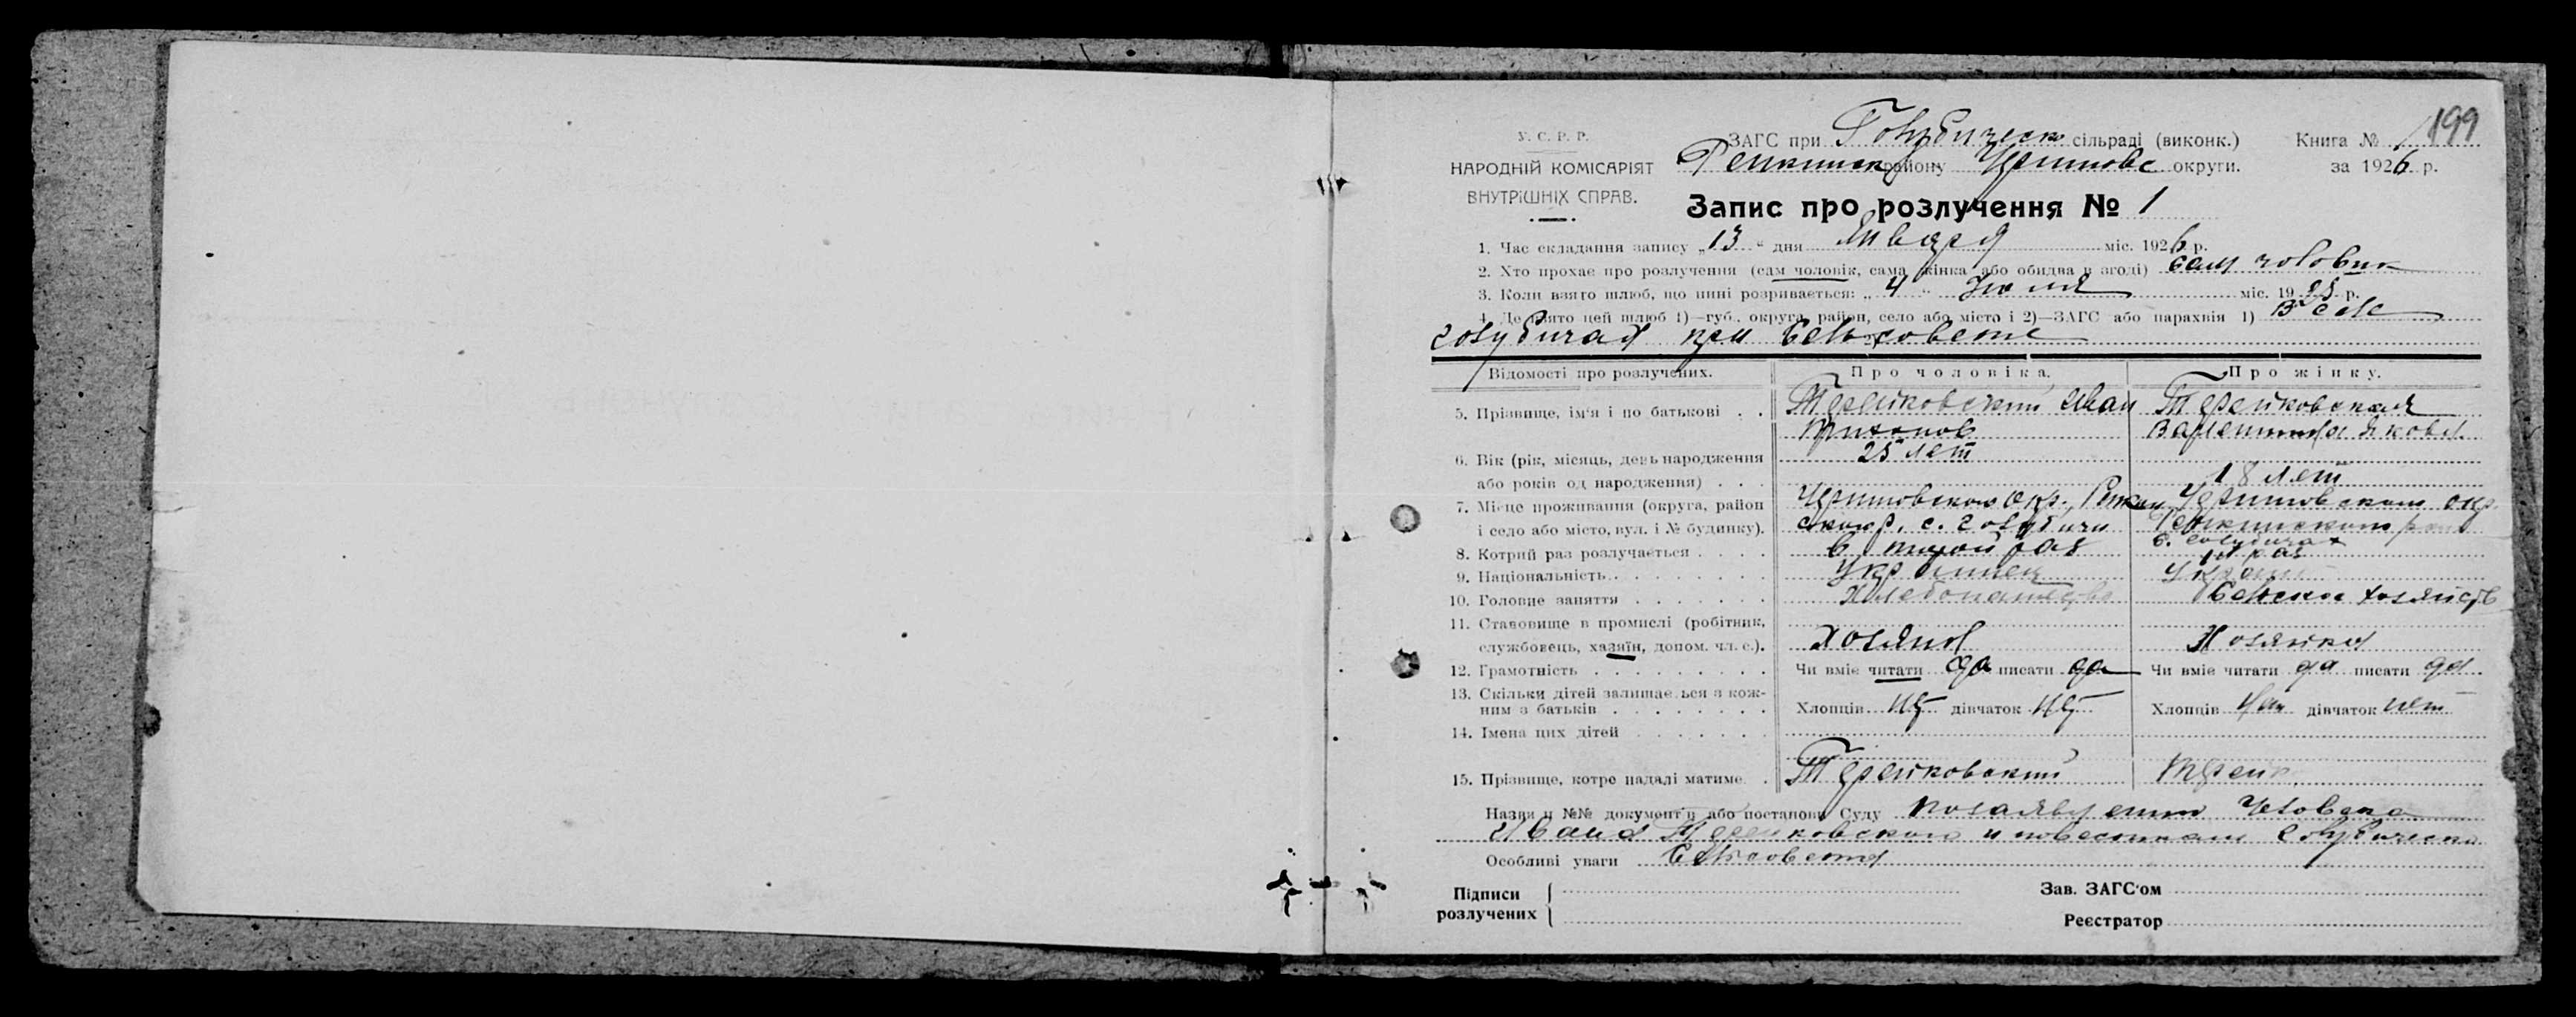 199
У. С. Р. Р.
НАРОДНІЙ КОМІСАРІЯТ
ВНУТРІШНІХ СПРАВ.
ЗАГС при Голубическ сільраді (виконк.) Книга № 1
Репкинск району Чернигов округи. за 1926 р.
Запис про розлучення № 1
1. Час складання запису „13" дня Января міс. 1926 р.
2. Хто прохає про розлучення (сам чоловік, сама жінка або обидва в згоді) сам чоловик
3. Коли взято шлюб, що нині розривається: „4" міс. 1925 р.
4. Де взято цей шлюб 1)—губ., округа, район, село або місто і 2)—ЗАГС або парахвія 1) В селе
голубичах при Сельсовете
Відомості про розлучених. Про чоловіка. Про жінку.
5. Прізвище, ім'я і по батькові . . Терейковский Иван Терейковская
Яковл.
6. Вік (рік, місяць, день народження 25 лет
або років од народження) . . . 18 лет
7. Місце проживання (округа, район Черниговского окр. Репкин Черниговского окр.
і село або місто, вул. і № будинку). ского р. с. Голубичи Репкинского
с. голубичах
8. Котрий раз розлучається . . . . раз раз
9. Національність . . . . . . . . Украинец
10. Головне заняття . . . . . . . Хлебопашество Сельское хозяйств
11. Становище в промислі (робітник,
службовець, хазяїн, допом. чл. с.). Хозяин Хозяйка
12. Грамотність . . . . . . . . . Чи вміє читати да писати да Чи вміє читати да писати да
13. Скільки дітей залишаєься з кож-
ним з батьків . . . . . . . . Хлопців дівчаток Хлопців дівчаток нет
14. Імена цих дітей . . . . . . .
15. Прізвище, котре надалі матиме . Терейковский Терейк.
Назви и №№ документів або постанови Суду по заявлению Человека
Ивана Терейковского и повесткам Голубическо
Особливі уваги Сельсовета
Підписи
розлучених
Зав. ЗАГС'ом
Реєстратор